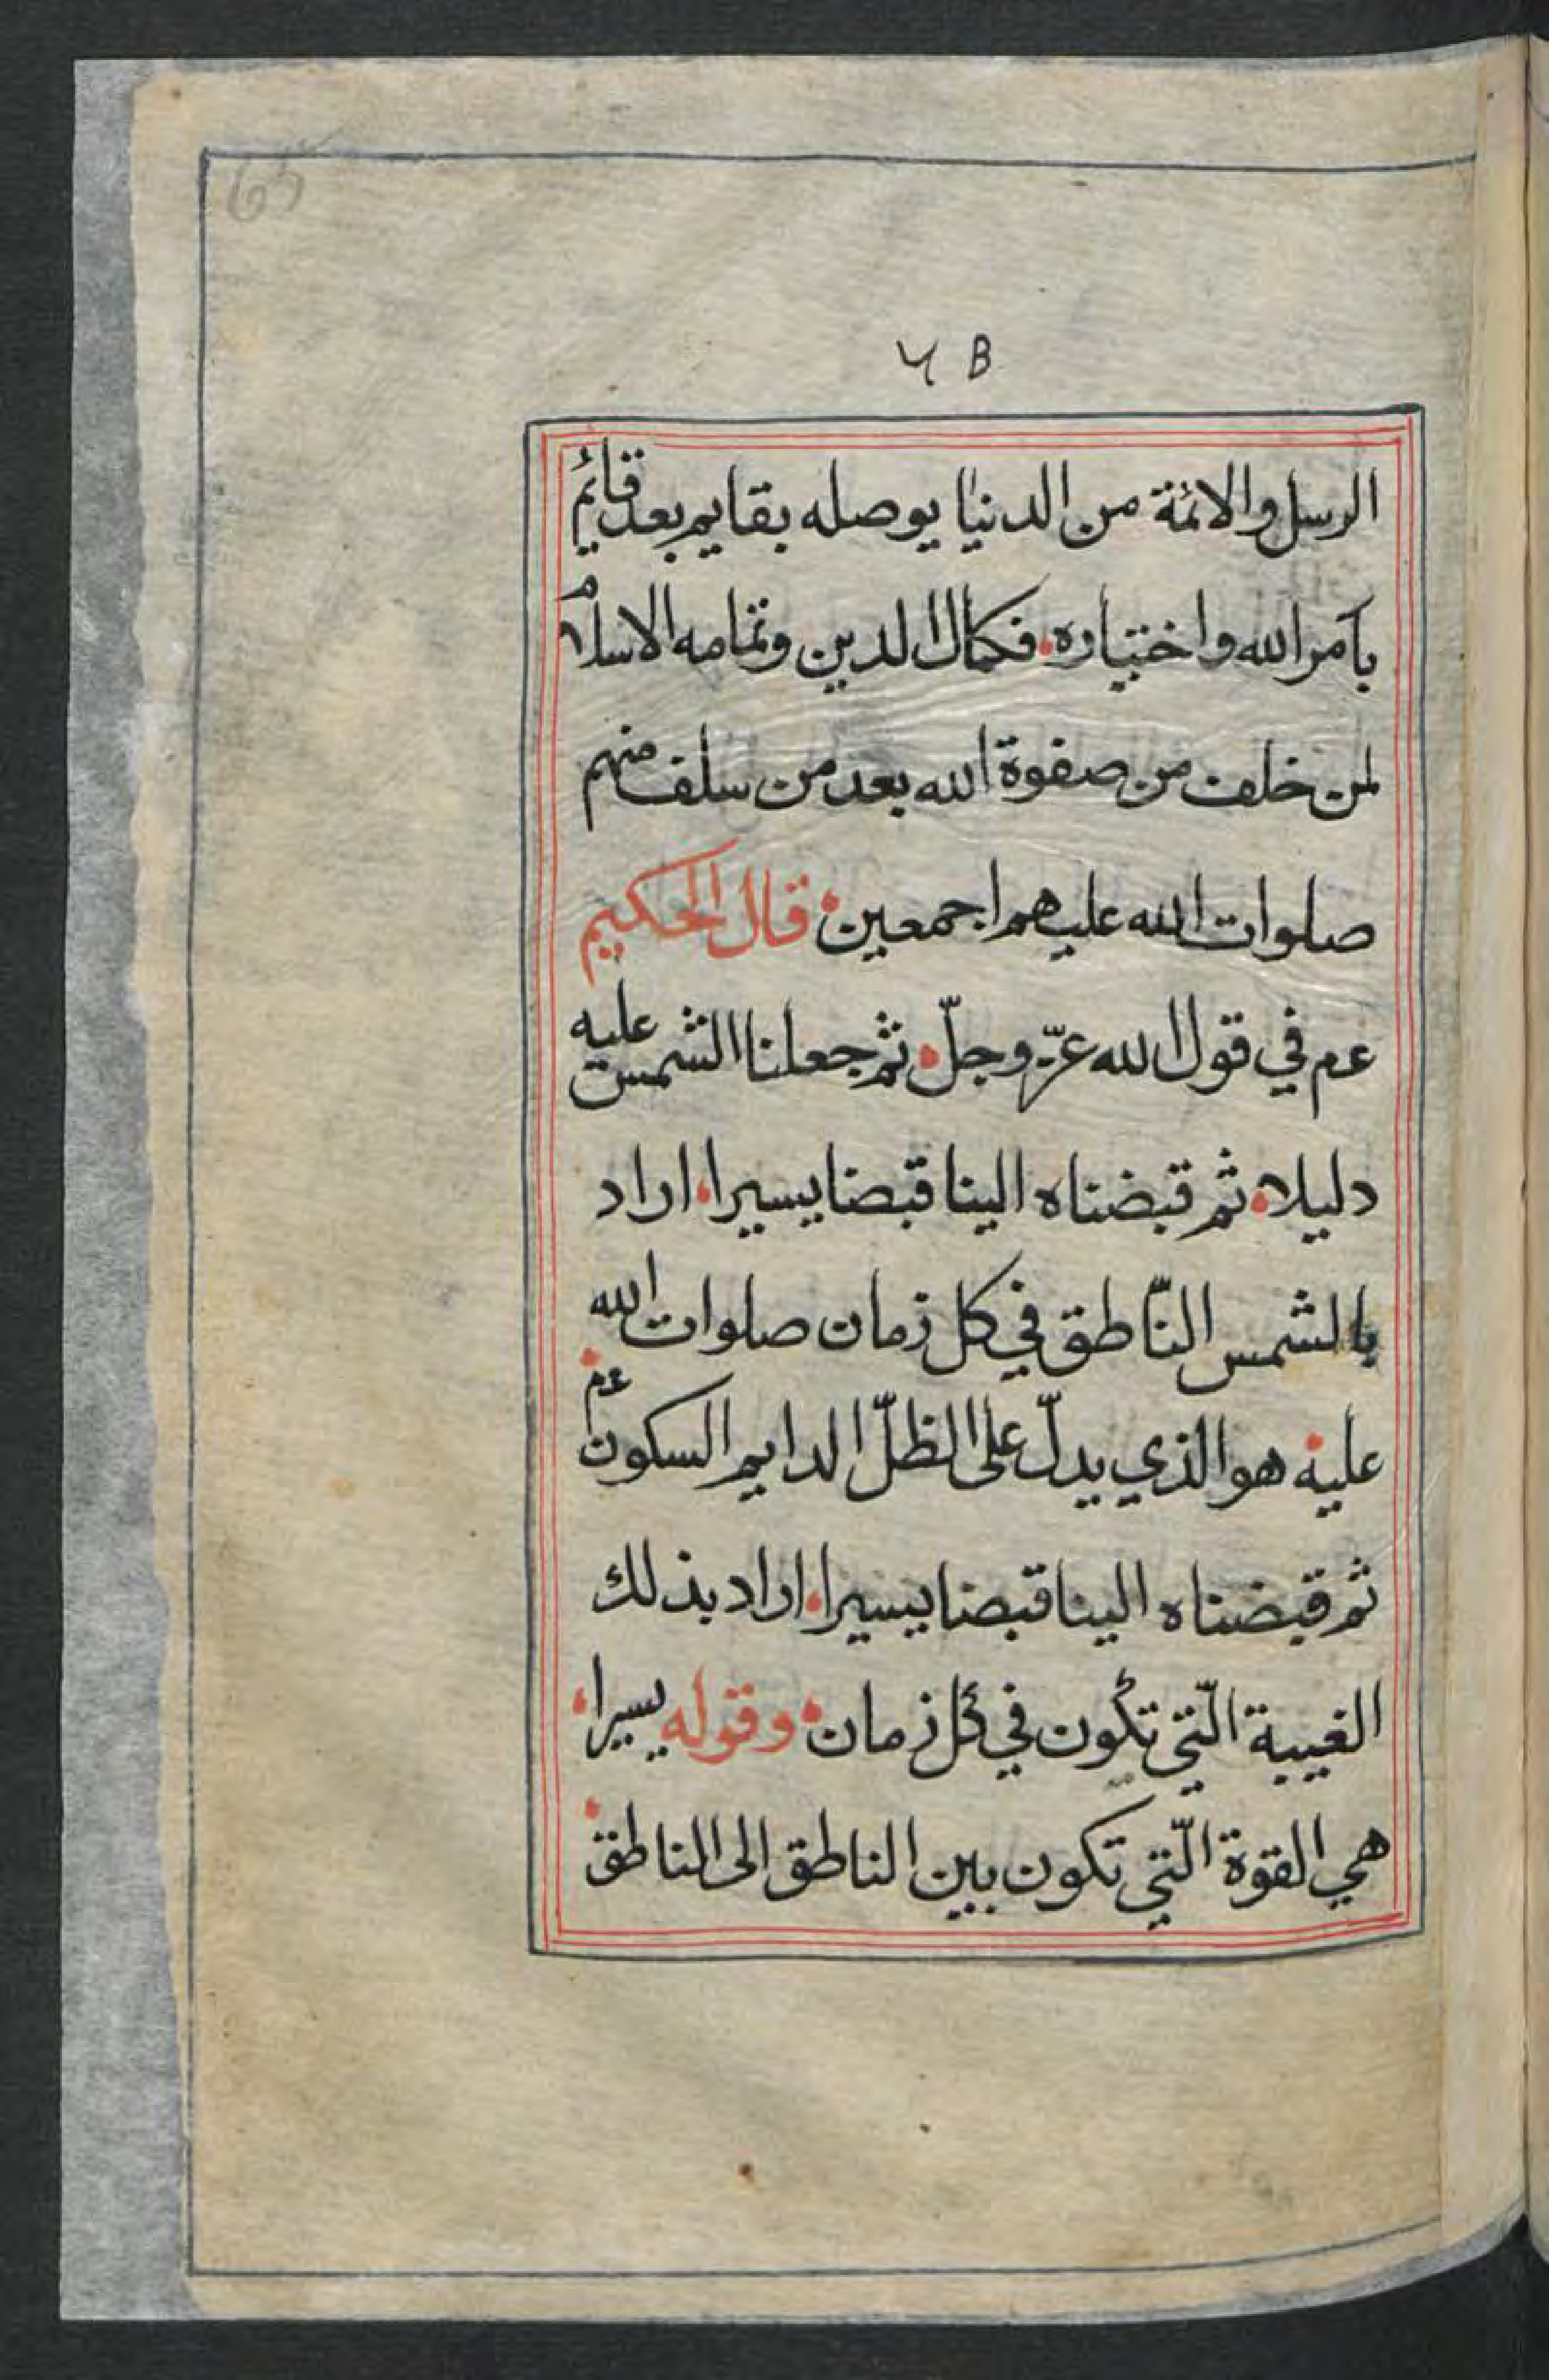 65
٦ B
الرسل والائمة من الدنيا يوصله بقايم بعد قائم
بأمر الله واختياره فكمال الدين وتمامه الاسلام
لمن خلف من صفوة الله بعد من سلف منهم
صلوات الله عليهم اجمعين قال الحكيم
عم في قول الله عزّ وجلّ ثم جعلنا الشمس عليه
دليلا ثم قبضناه الينا قبضا يسيرا اراد
بالشمس النّاطق في كل زمان صلوات الله
عليه هو الذي يدلّ على الظلّ الدايم السكون عم
ثم قبضناه الينا قبضا يسيرا اراد بذلك
الغيبة الّتي تكون في كل زمان وقوله يسيرا
هي القوة الّتي تكون بين الناطق الى الناطق